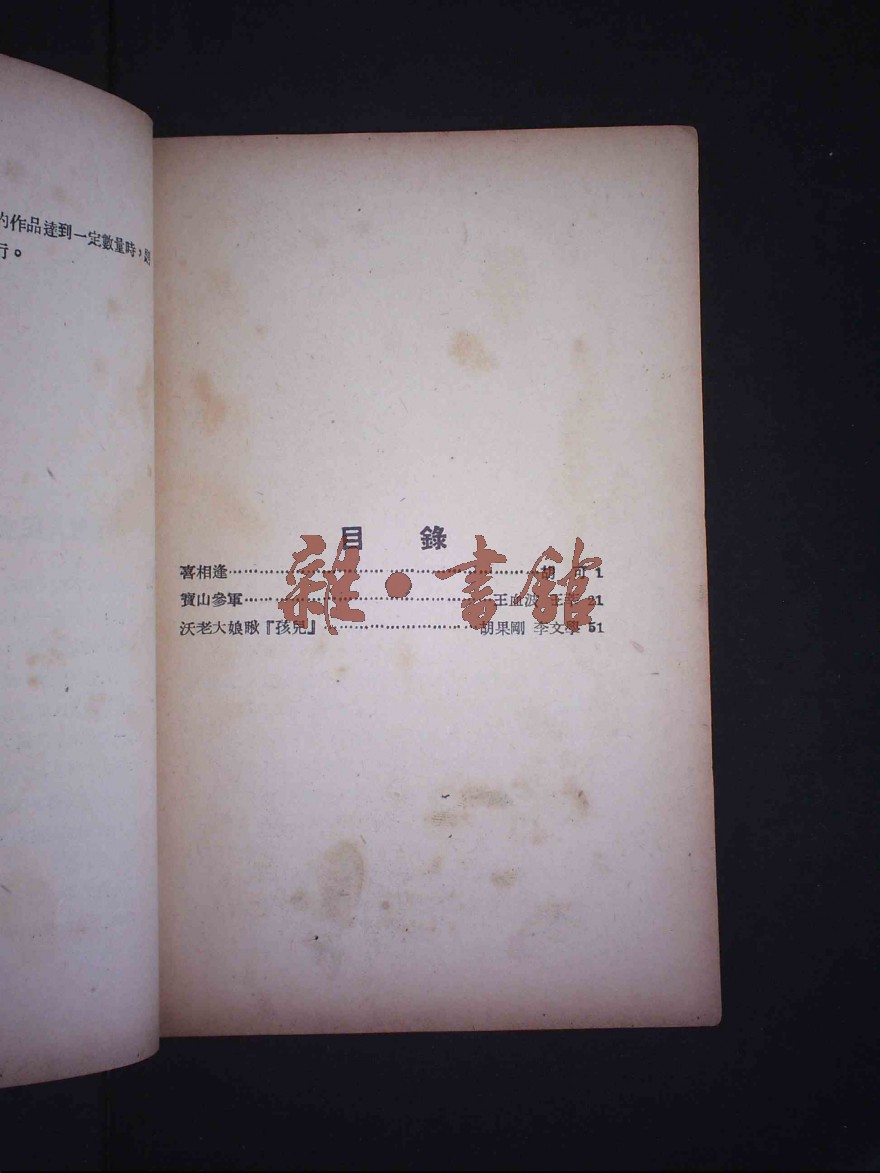 的作品達到一定數量時，
行。
目 錄
喜相逢 胡 可 1
寶山參軍 王血波 21
沃老大娘瞅『孩兒』 胡果剛 李文學 51
雜・書館